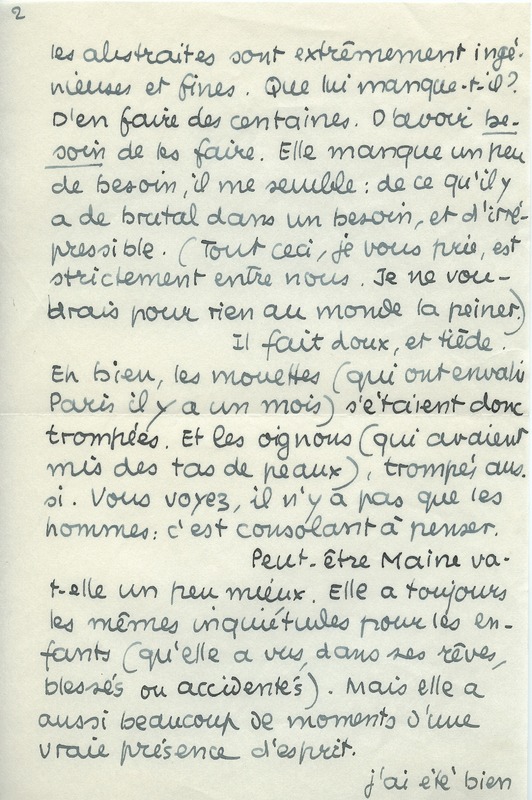 2
les abstraites sont extrêmement ingé-
nieuses et fines. Que lui manque-t-il?
D'en faire des centaines. D'avoir be-
soin de les faire. Elle manque un peu
de besoin, il me semble : de ce qu'il y
a de brutal dans un besoin, et d'irré-
pressible. (Tout ceci, je vous prie, est
strictement entre nous. Je ne vou-
drais pour rien au monde la peiner.)
Il fait doux, et tiède.
Eh bien, les mouettes (qui ont envahi
Paris il y a un mois) s'étaient donc
trompées. Et les oignons (qui avaient
mis des tas de peaux), trompés aus.
si. Vous voyez, il n'y a pas que les
hommes : c'est consolant à penser.
Peut-être Maine va-
t-elle un peu mieux. Elle a toujours
les mêmes inquiétudes pour les en-
fants (qu'elle a vus, dans ses rêves,
blessés ou accidentés). Mais elle a
aussi beaucoup de moments d'une
vraie présence d'esprit.
j'ai été bien